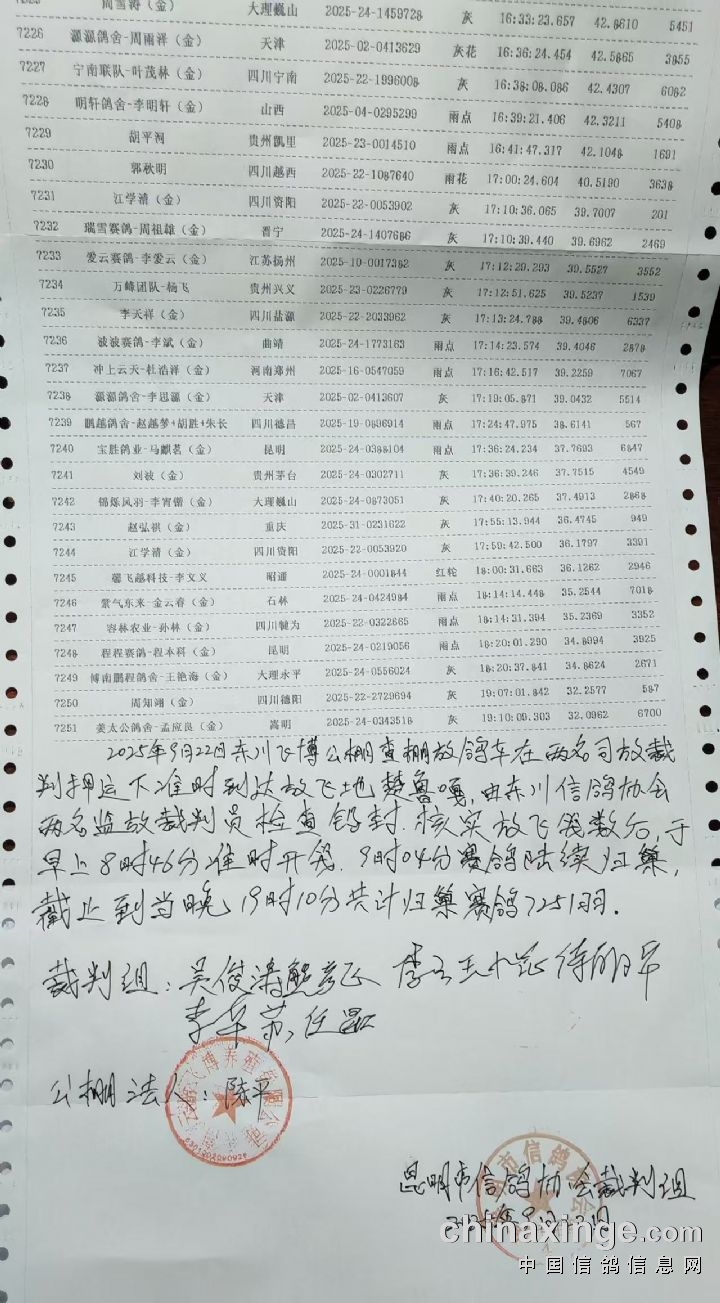 周雪涛（金） 大理巍山 2025-24-1459728 灰 16:33:23.657 42.8610 5451
7226 灏灏鸽舍-周雨祥（金） 天津 2025-02-0413629 灰花 16:36:24.454 42.5865 3855
7227 宁南联队-叶茂林（金） 四川宁南 2025-22-1996008 灰 16:38:08.086 42.4307 6082
7228 明轩鸽舍-李明轩（金） 山西 2025-04-0295299 雨点 16:39:21.406 42.3211 5408
7229 胡平洞 贵州凯里 2025-23-0014510 雨点 16:41:47.317 42.1048 1691
7230 郭秋明 四川越西 2025-22-1087640 雨花 17:00:24.604 40.5190 3638
7231 江学清（金） 四川资阳 2025-22-0053902 灰 17:10:36.065 39.7007 201
7232 瑞雪赛鸽-周祖雄（金） 晋宁 2025-24-1407686 灰 17:10:39.440 39.6962 2469
7233 爱云赛鸽-李爱云（金） 江苏扬州 2025-10-0017382 灰 17:12:29.293 39.5527 3552
7234 万峰团队-杨飞 贵州兴义 2025-23-0226779 灰 17:12:51.625 39.5237 1539
7235 李天祥（金） 四川盐源 2025-22-2033962 灰 17:13:24.788 39.4806 6337
7236 波波赛鸽-李斌（金） 曲靖 2025-24-1773163 雨点 17:14:23.574 39.4046 2878
7237 冲上云天-杜浩洋（金） 河南郑州 2025-16-0547059 雨点 17:16:42.517 39.2259 7067
7238 灏灏鸽舍-李思源（金） 天津 2025-02-0413607 灰 17:19:05.871 39.0432 5514
7239 鹏越鸽舍-赵越梦+胡胜+朱长 四川德昌 2025-19-0896914 雨点 17:24:47.975 38.6141 567
7240 宝胜鸽业-马麒茗（金） 昆明 2025-24-0388104 雨点 17:36:24.234 37.7693 6847
7241 刘波（金） 贵州茅台 2025-24-0302711 灰 17:36:39.246 37.7515 4549
7242 锦烁凤羽-李宵锴（金） 大理巍山 2025-24-0873051 灰 17:40:20.265 37.4913 2868
7243 赵弘祺（金） 重庆 2025-31-0231622 灰 17:55:13.944 36.4745 949
7244 江学清（金） 四川资阳 2025-22-0053920 灰 17:59:42.500 36.1797 3391
7245 馨飞越科技-李文义 昭通 2025-24-0001844 红轮 18:00:31.663 36.1262 2946
7246 紫气东来-金云春（金） 石林 2025-24-0424984 雨点 18:14:14.448 35.2544 7018
7247 容林农业-孙林（金） 四川犍为 2025-22-0322665 雨点 18:14:31.394 35.2369 3352
7248 程程赛鸽-程本科（金） 昆明 2025-24-0219056 雨点 18:20:01.290 34.8994 3925
7249 博南鹏程鸽舍-王艳海（金） 大理永平 2025-24-0556024 灰 18:20:37.841 34.8624 2671
7250 周知翊（金） 四川德阳 2025-22-2729694 灰 19:07:01.842 32.2577 587
7251 姜太公鸽舍-孟应良（金） 嵩明 2025-24-0343518 灰 19:10:09.303 32.0962 6700
2025年9月22日东川飞博公棚查棚放鸽车在两名司放裁
判押运下准时到达放飞地楚鲁嘎，由东川信鸽协会
两名监放裁判员检查铅封，核实放飞羽数后，于
早上8时46分准时开笼。9时04分赛鸽陆续归巢，
截止到当晚19时10分共计归巢赛鸽7251羽．
裁判组：吴俊涛
公棚法人：陈平
昆明市信鸽协会裁判组
市信鸽协会
chinaxinge.com
中国信鸽信息网